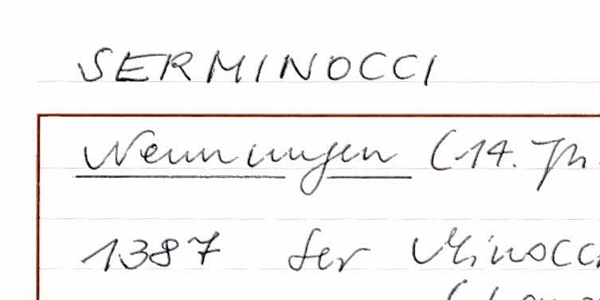 SERMINOCCI
Nennungen (14. Jh.
1387 Ser Minocci